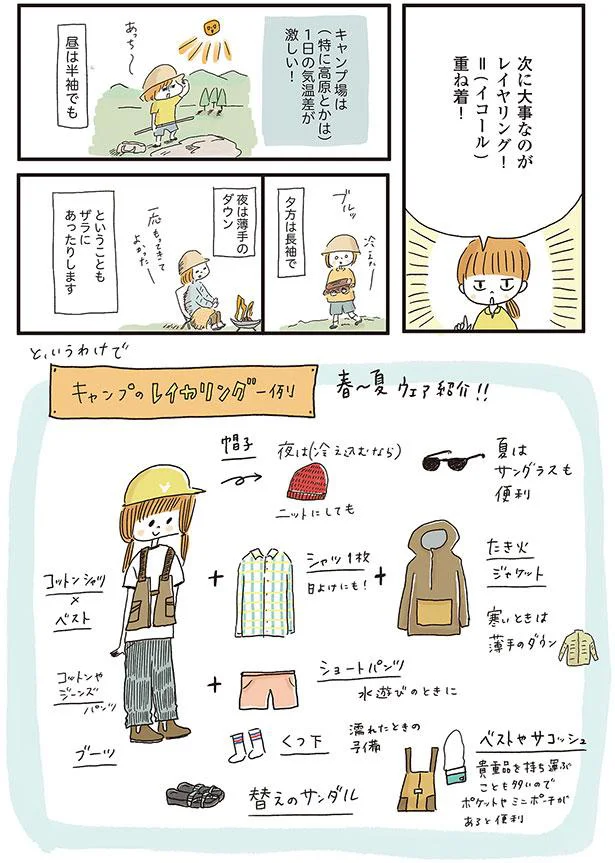 次に大事なのが
レイヤリング！
＝(イコール)
重ね着！
キャンプ場は
(特に高原とかは)
1日の気温差が
激しい！
あっち〜
昼は半袖でも
夕方は長袖で
ブルッ
冷えた〜
夜は薄手の
ダウン
一応もってきて
よかった〜
ということも
ザラに
あったりします
というわけで
キャンプのレイヤリング一例
春〜夏 ウェア紹介!!
帽子
夜は(冷え込むなら)
ニットにしても
夏は
サングラスも
便利
コットンシャツ
×
ベスト
+
シャツ1枚
日よけにも!
+
たき火
ジャケット
寒いときは
薄手のダウン
コットンや
ジーンズ
パンツ
+
ショートパンツ
水遊びのときに
ブーツ
くつ下
濡れたときの
予備
替えのサンダル
ベストやサコッシュ
貴重品を持ち運ぶ
ことも多いので
ポケットやミニポーチが
あると便利